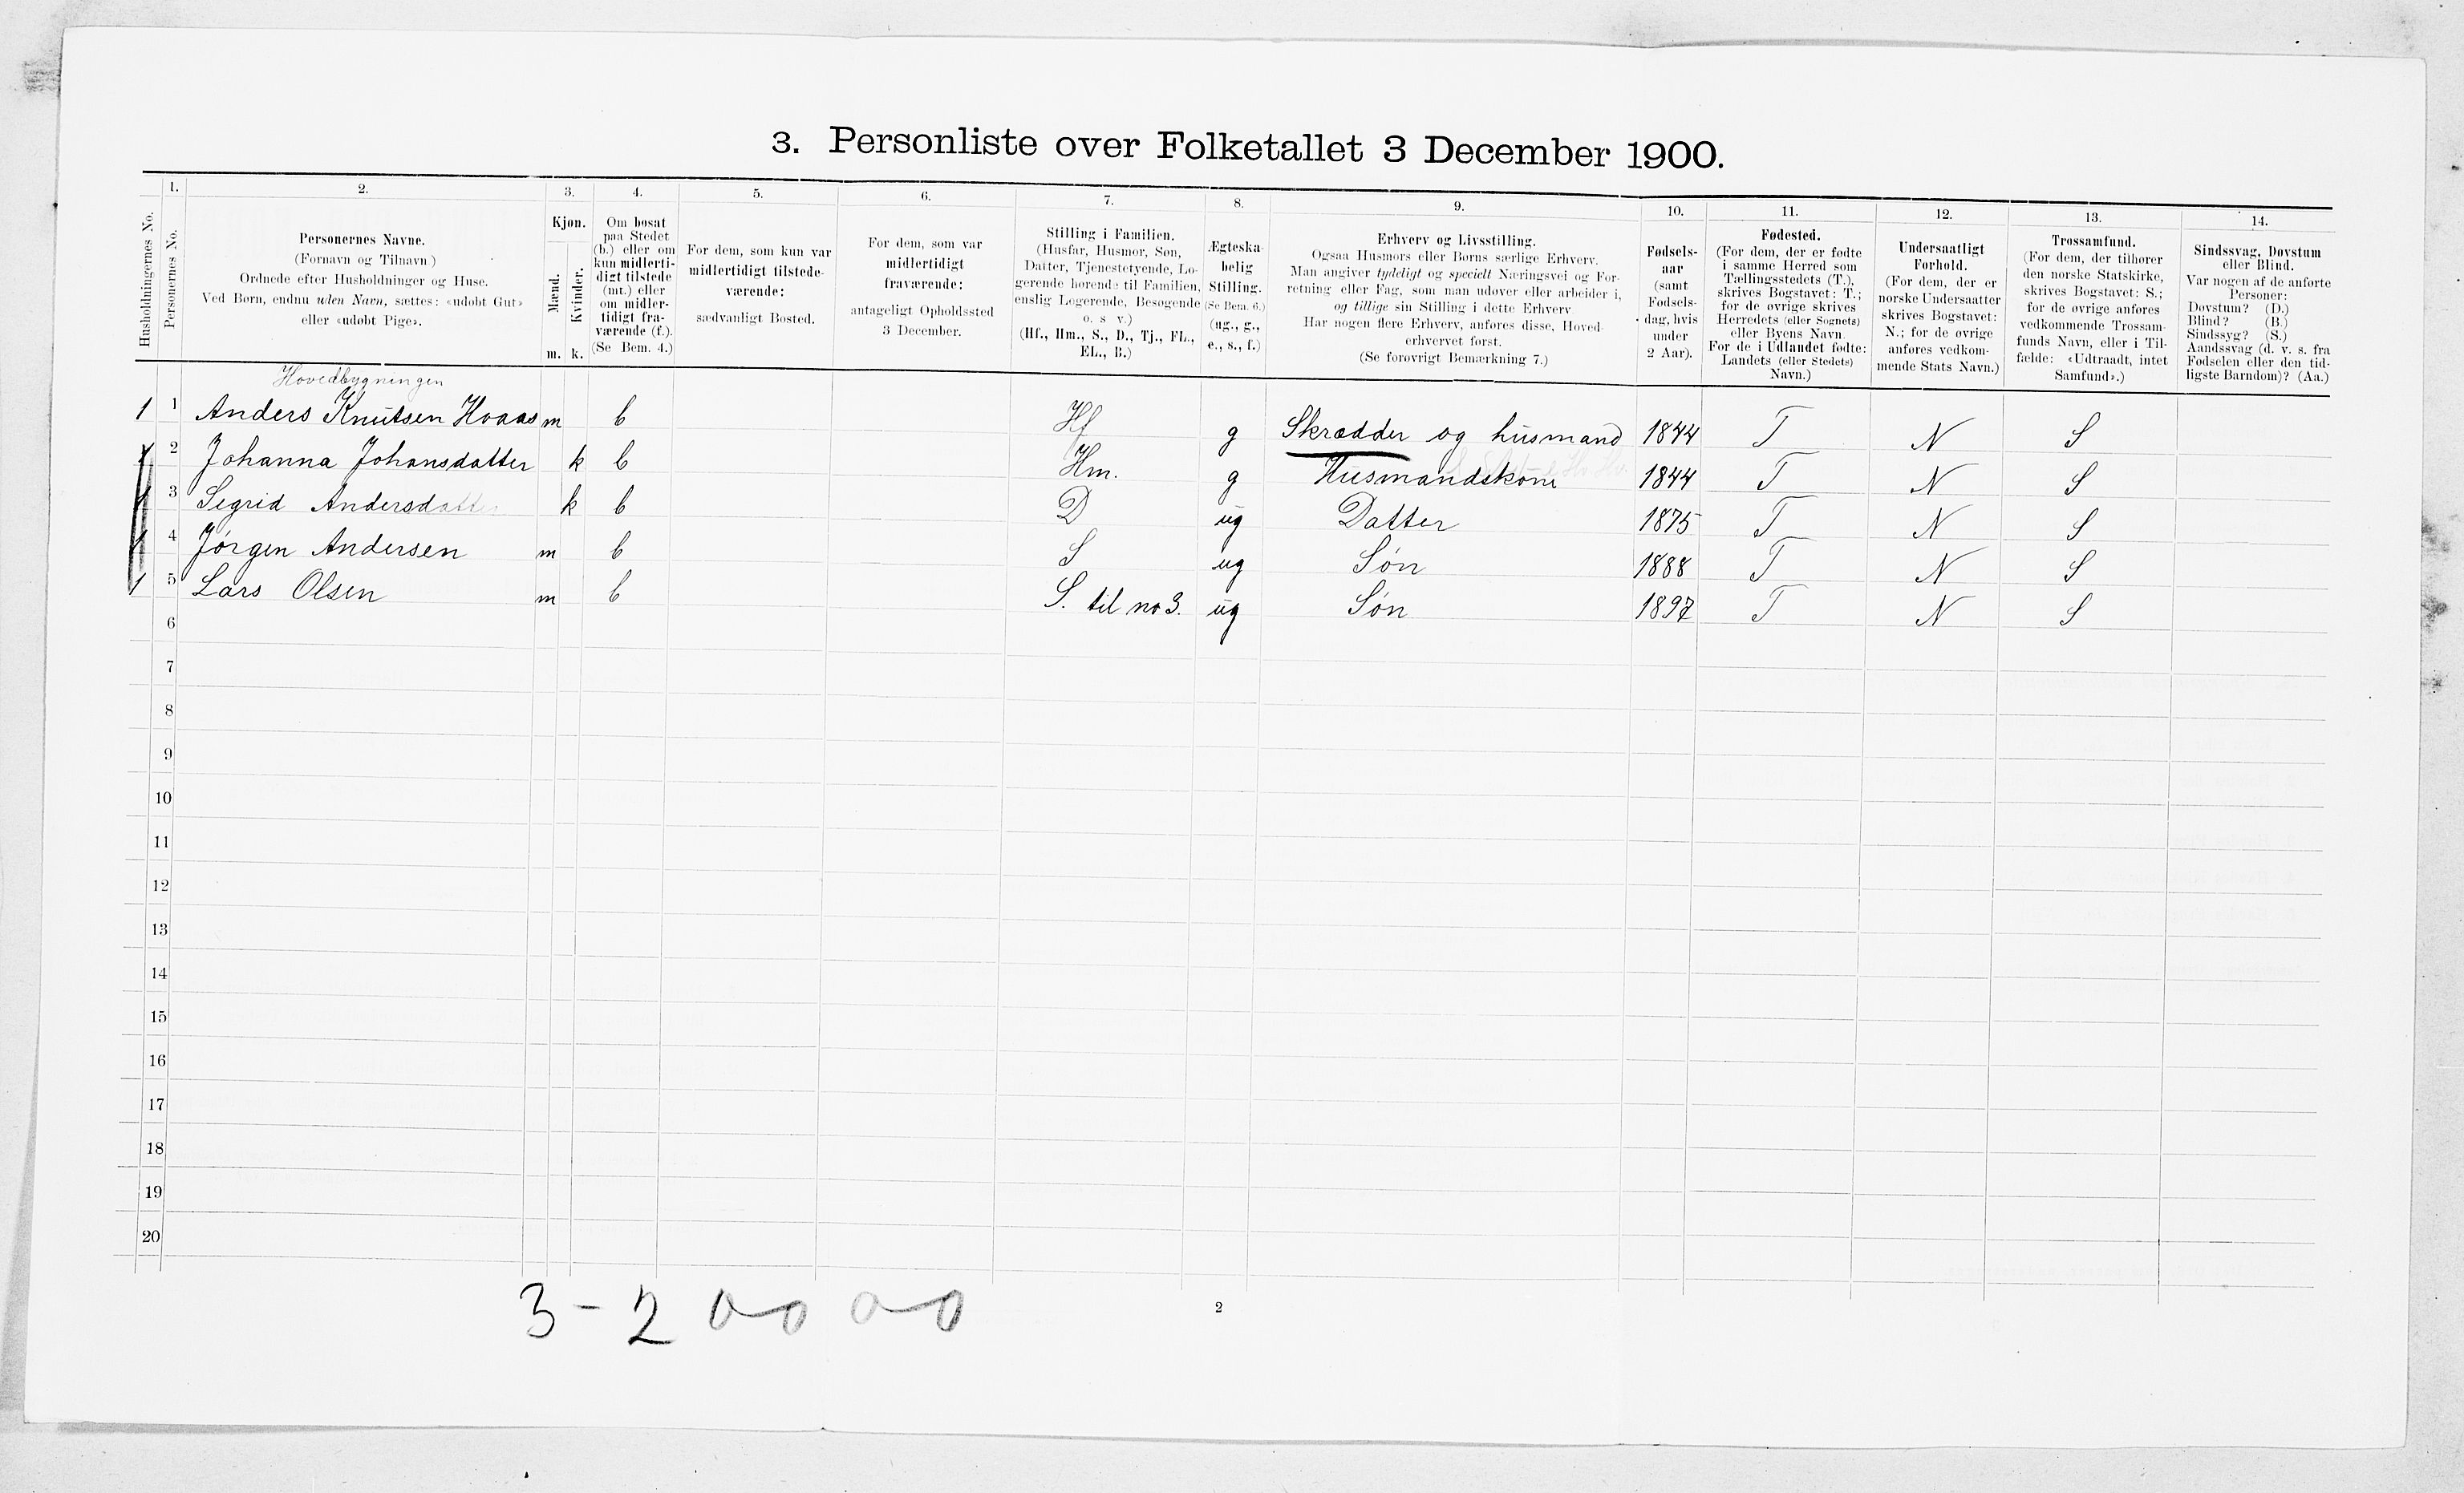 3. Personliste over Folketallet 3 December 1900.
1. 2. 3. 4. 5. 6. 7. 8. 9. 10. 11. 12. 13. 14.
Husholdningernes No.
Personernes No.
Personernes Navne.
(Fornavn og Tilnavn.)
Ordnede efter Husholdninger og Huse.
Ved Børn, endnu uden Navn, sættes: «udøbt Gut»
eller «udøbt Pige».
Kjøn.
Mænd.
Kvinder.
m. k.
Om bosat
paa Stedet
(b.) eller om
kun midlerti-
digt tilstede
(mt.) eller
om midler-
tidigt fra-
værende (f.).
(Se Bem. 4.)
For dem, som kun var
midlertidigt tilstede-
værende:
sædvanligt Bosted.
For dem, som var
midlertidigt
fraværende:
antageligt Opholdssted
3 December.
Stilling i Familien.
(Husfar, Husmor, Søn,
Datter, Tjenestetyende, Lo-
gerende hørende til Familien,
enslig Logerende, Besøgende
o. s v.)
(Hf., Hm., S., D., Tj., FL.,
EL., B.)
Ægteska-
belig
Stilling.
(Se Bem. 6.)
(ug., g.,
e., s., f.)
Erhverv og Livsstilling.
Ogsaa Husmors eller Børns særlige Erhverv.
Man angiver tydeligt og specielt Næringsvei og For-
retning eller Fag, som man udøver eller arbeider i,
og tillige sin Stilling i dette Erhverv
Har nogen flere Erhverv, anføres disse, Hoved-
erhvervet først.
(Se forøvrigt Bemærkning 7.)
Fødsels-
aar
(samt
Fødsels-
dag, hvis
under
2 Aar).
Fødested.
(For dem, der er fødte
i samme Herred som
Tællingsstedets (T.),
skrives Bogstavet: T.;
for de øvrige skrives
Herredets (eller Sognets)
eller Byens Navn.
For de i Udlandet fødte:
Landets (eller Stedets)
Navn.)
Undersaatligt
Forhold.
(For dem, der er
norske Undersaatter
skrives Bogstavet:
N.; for de øvrige
anføres vedkom-
mende Stats Navn.)
Trossamfund.
(For dem, der tilhører
den norske Statskirke,
skrives Bogstavet: S.;
for de øvrige anføres
vedkommende Trossam-
funds Navn, eller i Til-
fælde: «Udtraadt, intet
Samfund».)
Sindssvag, Døvstum
eller Blind.
Var nogen af de anførte
Personer:
Døvstum? (D.)
Blind? (B.)
Sindssyg? (S.)
Aandssvag (d. v. s. fra
Fødselen eller den tid-
ligste Barndom)? (Aa.)
Hovedbygningen
1 1 Anders Knutsen Hoaas m b Hf g Skrædder og husmand 1844 T N S
1 2 Johanna Johansdatter k b Hm. g Husmandskone 1844 T N S
1 3 Segrid Andersdatter k b D ug Datter 1875 T N S
1 4 Jørgen Andersen m b S ug Søn 1888 T N S
1 5 Lars Olsen m b S. til no 3. ug Søn 1897 T N S
6
7
8
9
10
11
12
13
14
15
16
17
18
19
20
3 - 2 0-0 0-0
2